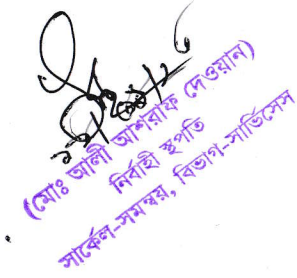 (মোঃ আলী আশরাফ দেওয়ান)
নির্বাহী স্থপতি
সার্কেল-সমন্বয়, বিভাগ-সার্ভিসেস